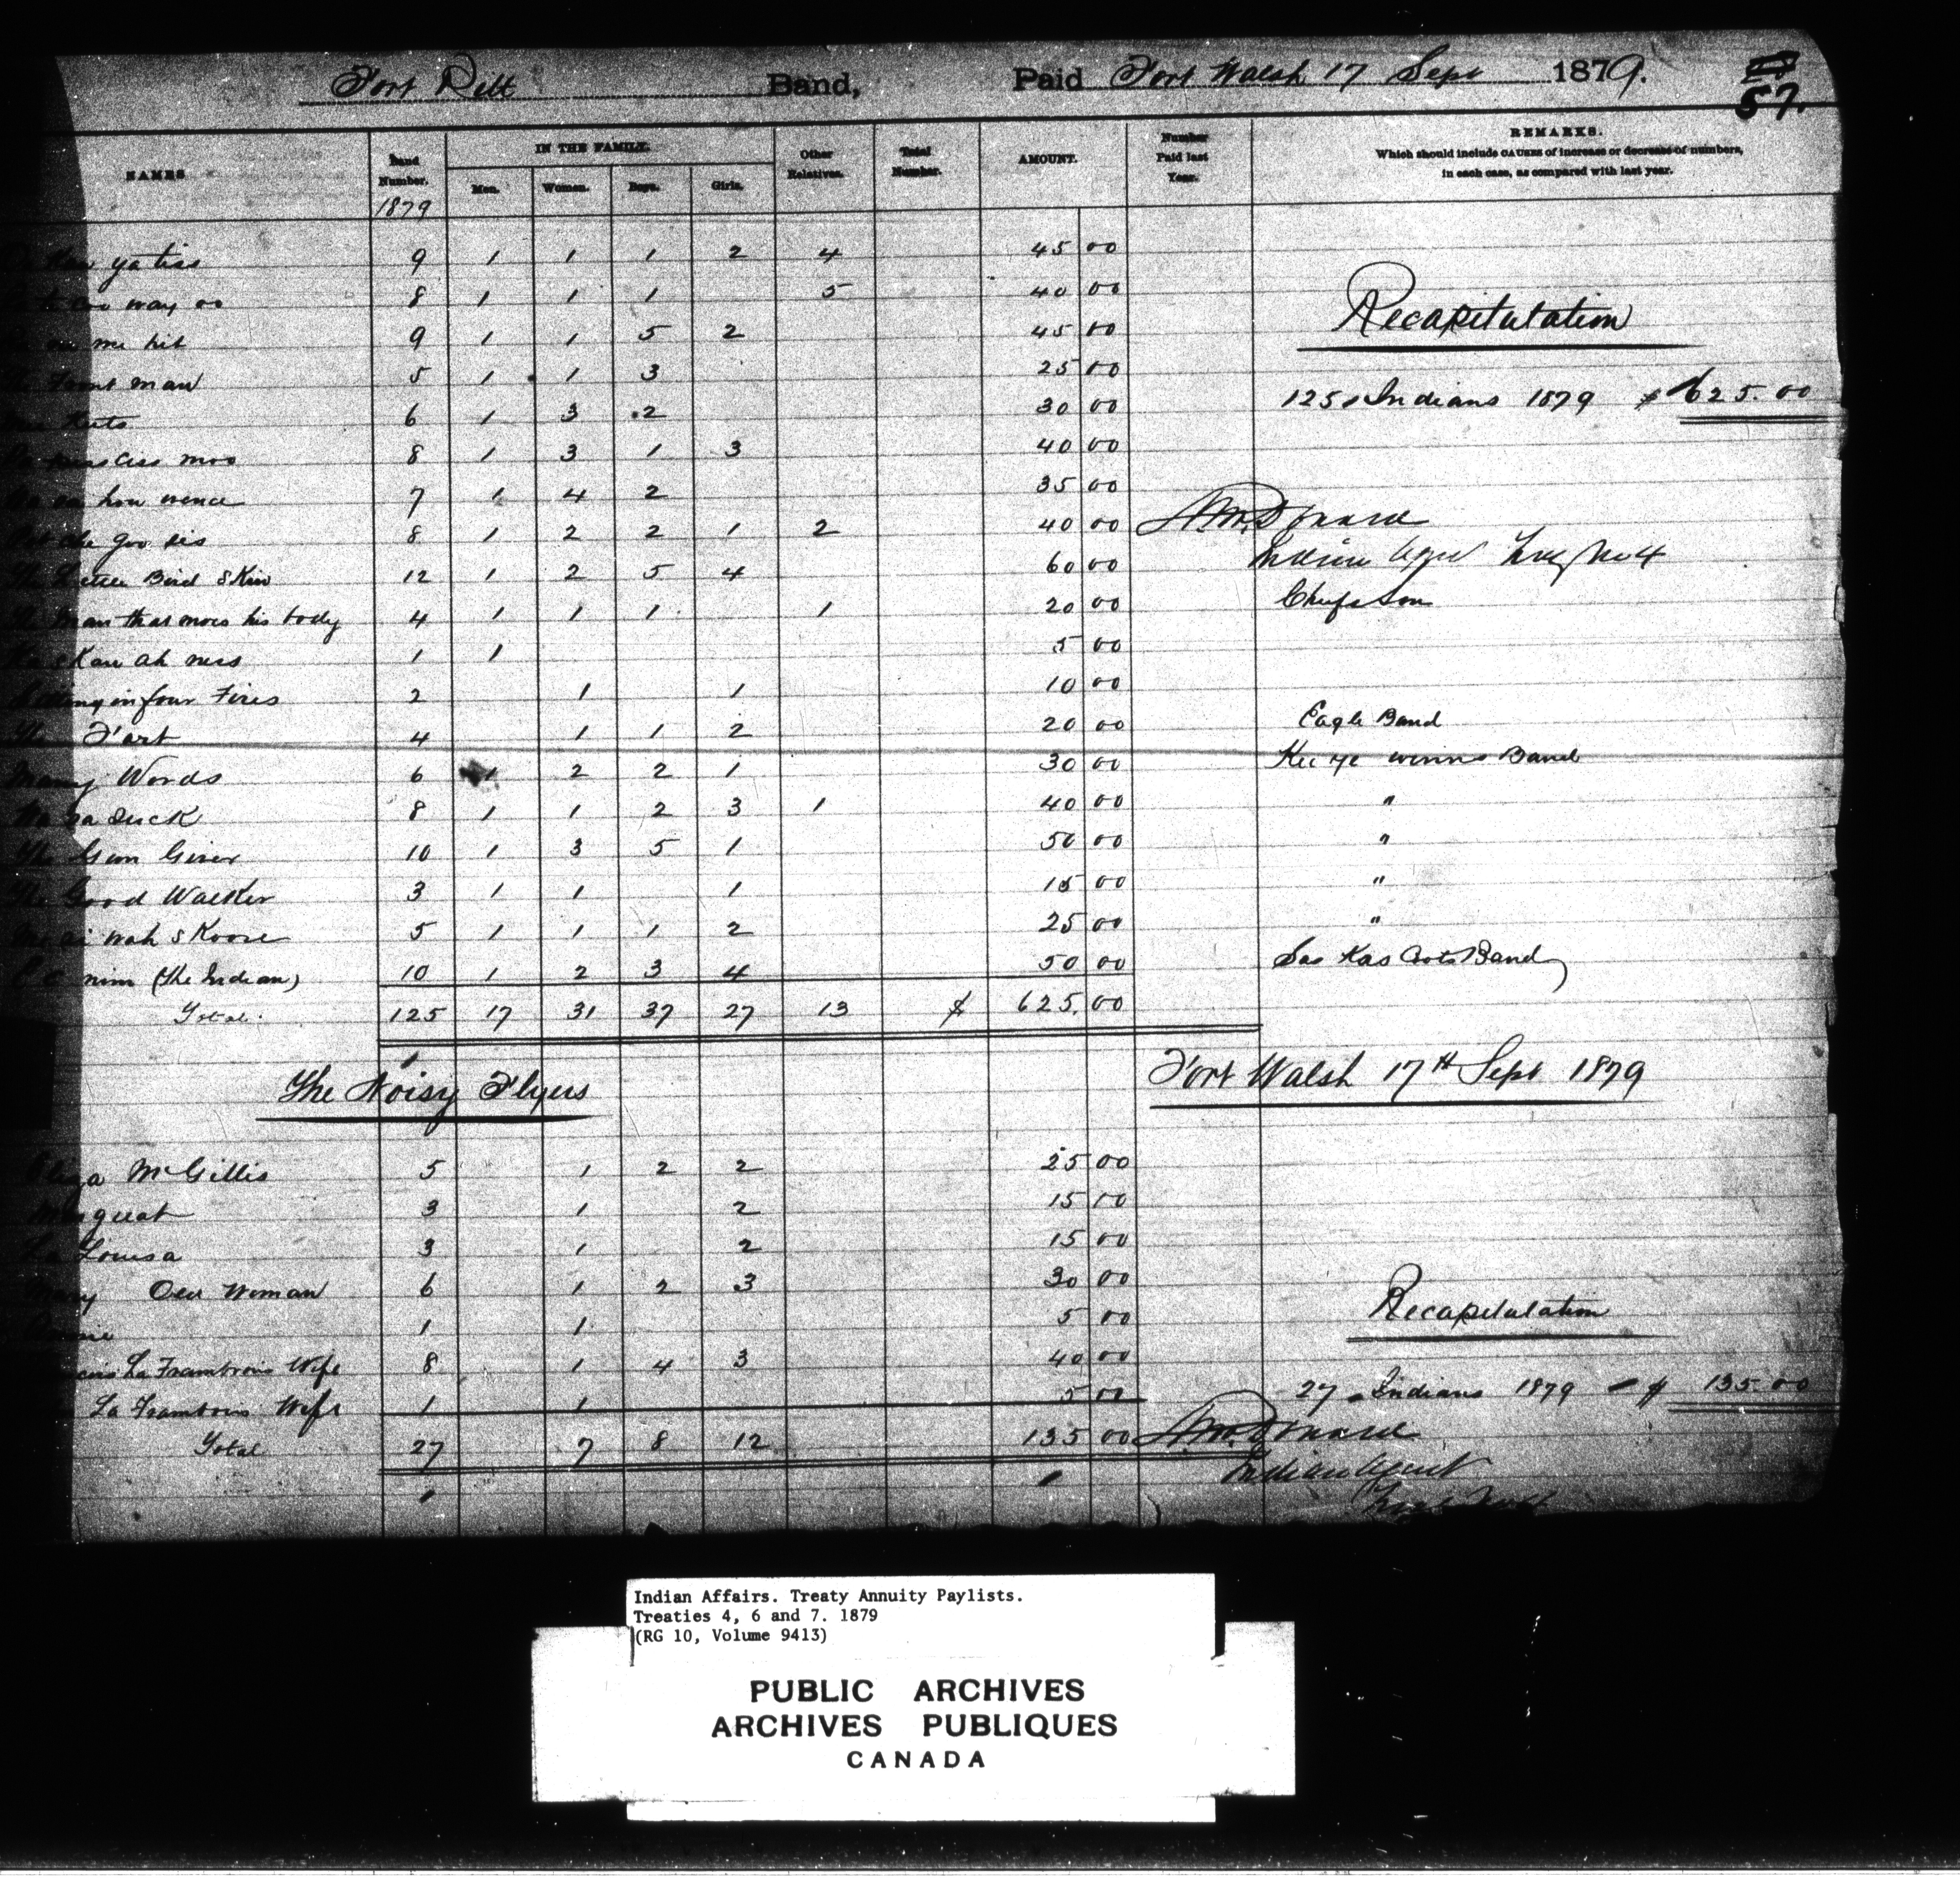 Fort Pitt Band, Paid Fort Walsh 17 Sept 1879.
57.
NAMES Band Number. IN THE FAMILY. Other Relatives. Total Number. AMOUNT. Number Paid last Year. REMARKS.
Men. Women. Boys. Girls. Which should include CAUSES of increase or decrease of numbers, in each case, as compared with last year.
1879
ya tiss 9 1 1 1 2 4 45 00
way oo 8 1 1 1 5 40 00
me hit 9 1 1 5 2 45 00
Recapitulation
Front man 5 1 1 3 25 00
125 Indians 1879 $ 625.00
6 1 3 2 30 00
ciss moo 8 1 3 1 3 40 00
7 1 4 2 35 00
che goo sis 8 1 2 2 1 2 40 00 A. McDonald
The Little Bird Skin 12 1 2 5 4 60 00 Indian Agent Treaty No 4
The Man that moves his body 4 1 1 1 1 20 00 Chiefs Son
1 1 5 00
Sitting in four Fires 2 1 1 10 00
The Fart 4 1 1 2 20 00 Eagle Band
Many Words 6 1 2 2 1 30 00 Kee ye winns Band
8 1 1 2 3 1 40 00 "
The Gun Giver 10 1 3 5 1 50 00 "
The Good Walker 3 1 1 1 15 00 "
wah skoose 5 1 1 1 2 25 00 "
nim (The Indian) 10 1 2 3 4 50 00 Sas Kas Coots Band
Total 125 17 31 37 27 13 $ 625.00
The Noisy Flyers Fort Walsh 17th Sept 1879
Eliza McGillis 5 1 2 2 25 00
3 1 2 15 00
La Louisa 3 1 2 15 00
Mary Old Woman 6 1 2 3 30 00
1 1 5 00
Recapitulation
La Frambois Wife 8 1 4 3 40 00
La Frambois Wife 1 1 5 00
27 Indians 1879 - $ 135.00
Total 27 7 8 12 135 00 A. McDonald
Indian Agent
Indian Affairs. Treaty Annuity Paylists.
Treaties 4, 6 and 7. 1879
(RG 10, Volume 9413)
PUBLIC ARCHIVES
ARCHIVES PUBLIQUES
CANADA